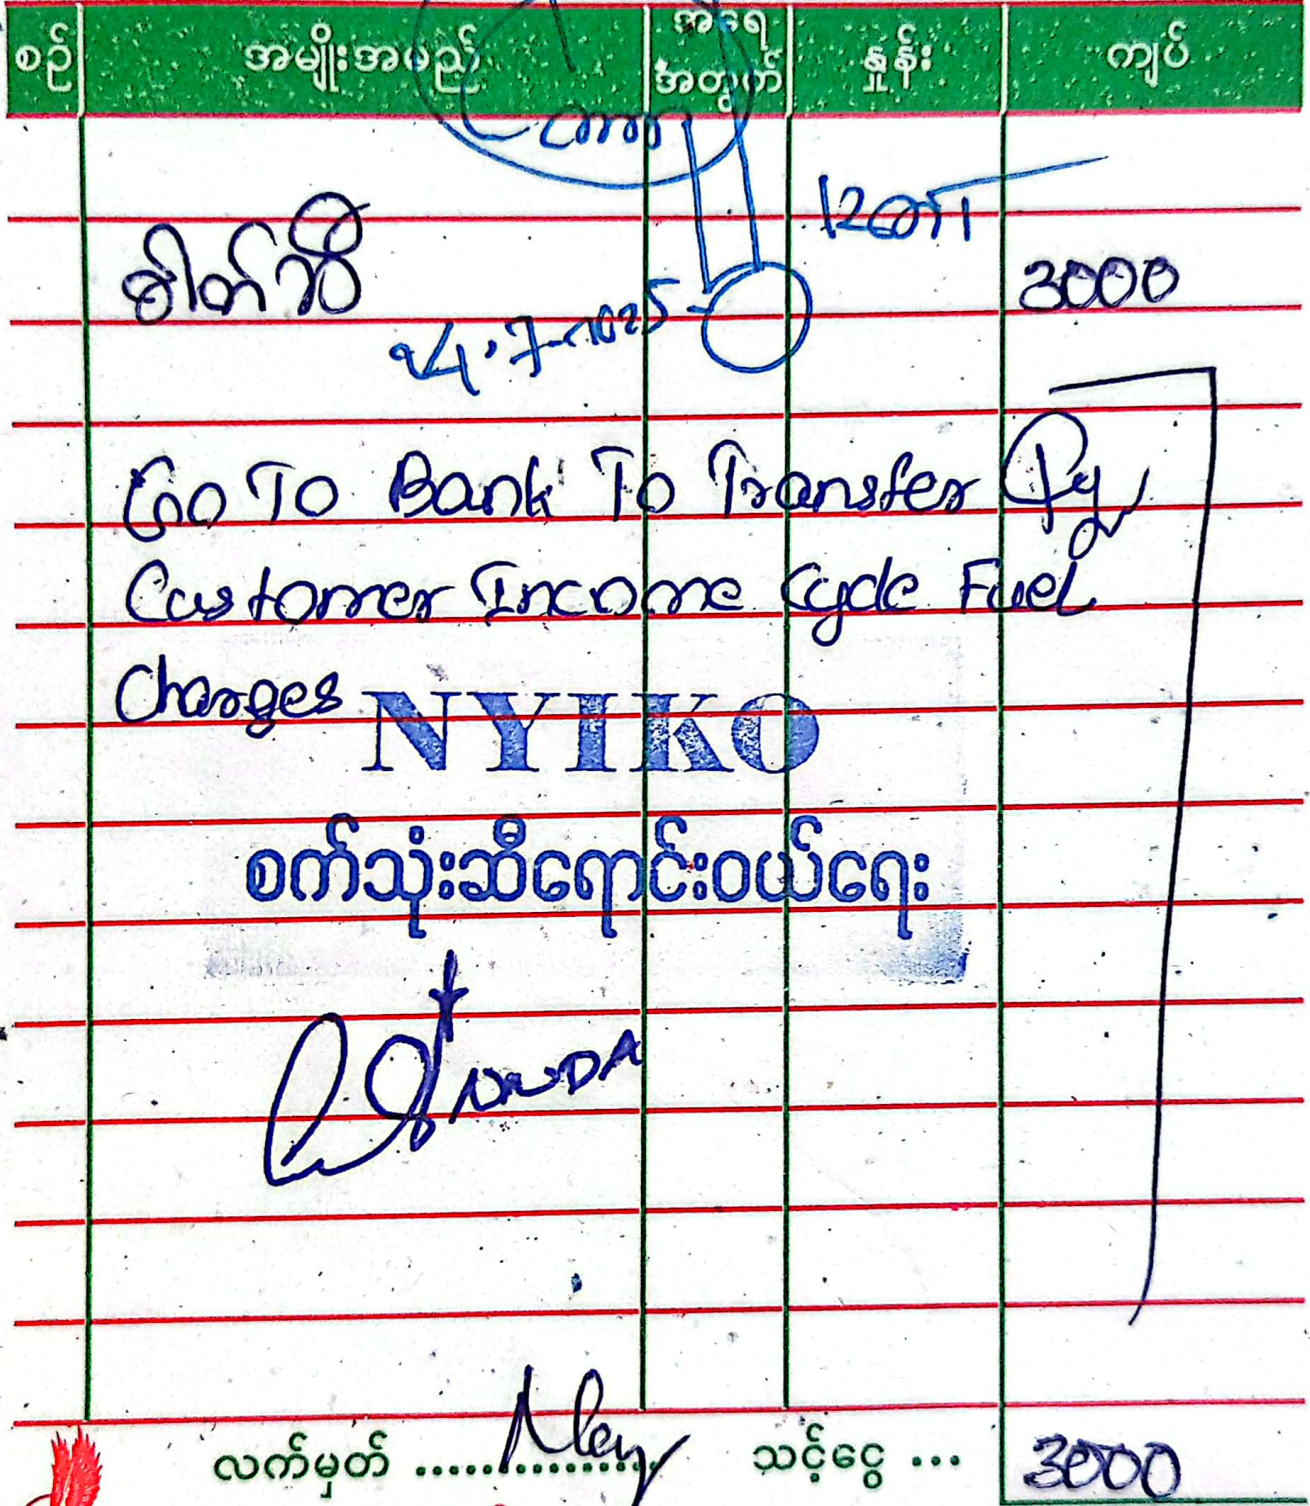 စဉ် အမျိုးအမည် အရေအတွက် နှုန်း ကျပ်
ဓါတ်ဆီ 3000
24.7.2025
Go To Bank To Transfer Pg
Customer Income Cycle Fuel
Charges
NYIKO
စက်သုံးဆီရောင်းဝယ်ရေး
လက်မှတ် ............... သင့်ငွေ ... 3000